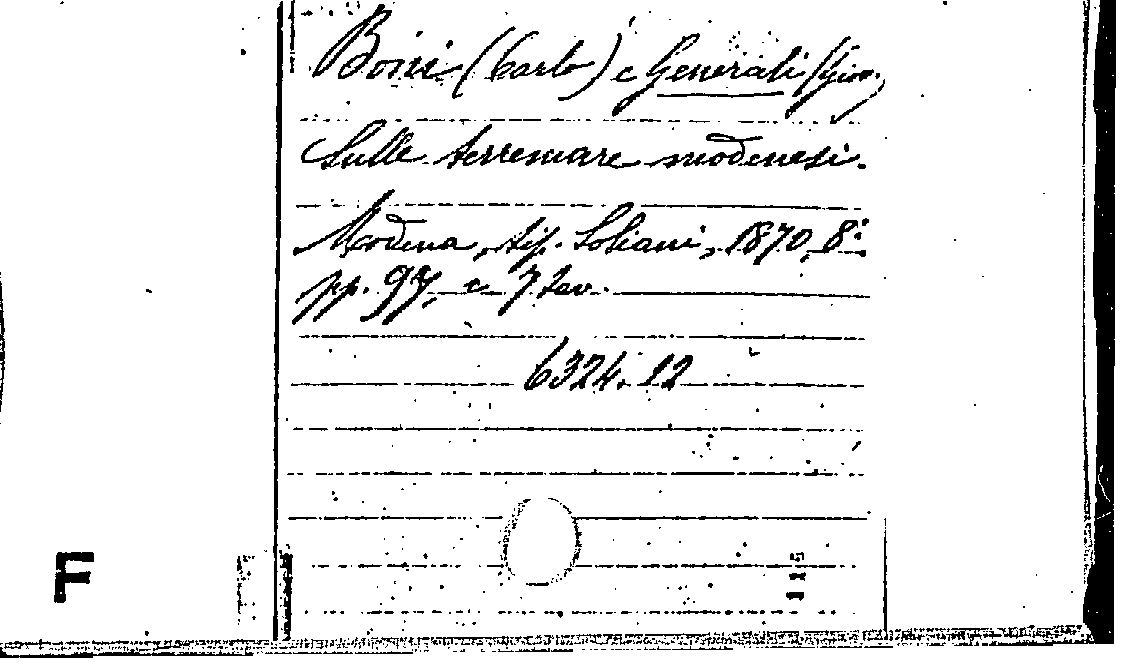 Boni (Carlo) e Generali (Giov.)
Sulle terremare modenesi.
Modena, tip. Soliani, 1870, 8º.
pp. 97, c 7 tav.
6324. 12
F
115